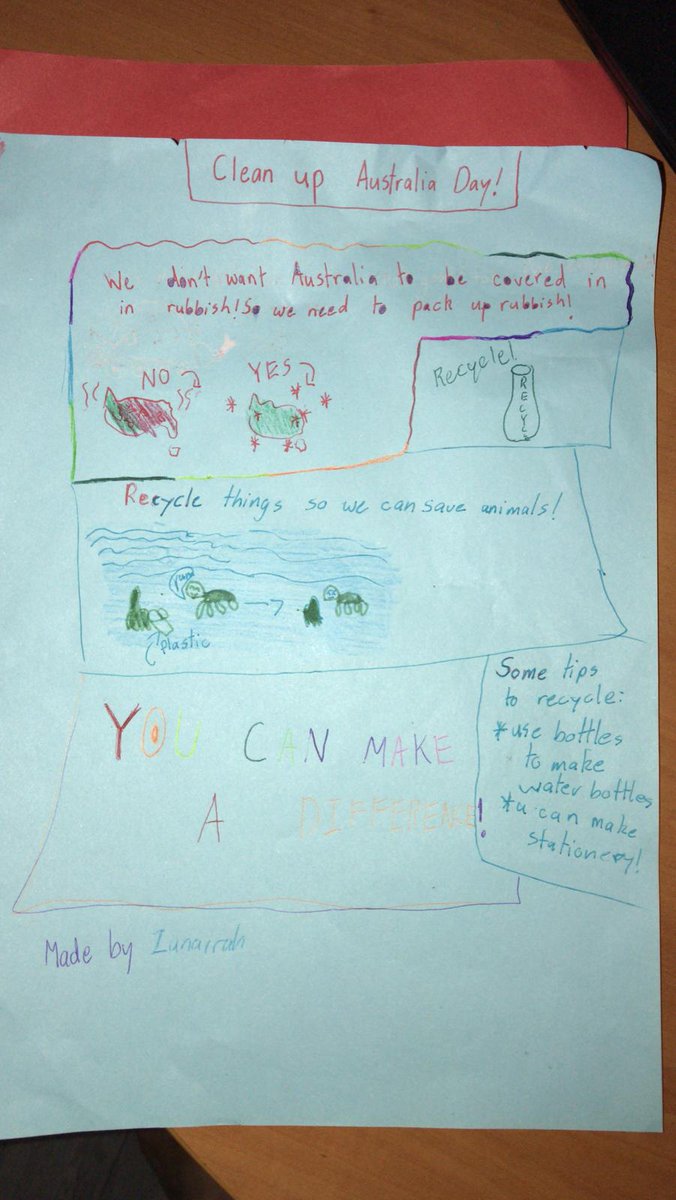 Clean up Australia Day!
We don't want Australia to be covered in
in rubbish! So we need to pack up rubbish!
NO
YES
Recycle!
RECYCL
Recycle things so we can save animals!
yum
plastic
YOU CAN MAKE
A DIFFERENCE!
Some tips
to recycle:
*use bottles
to make
water bottles
*u can make
stationery!
Made by